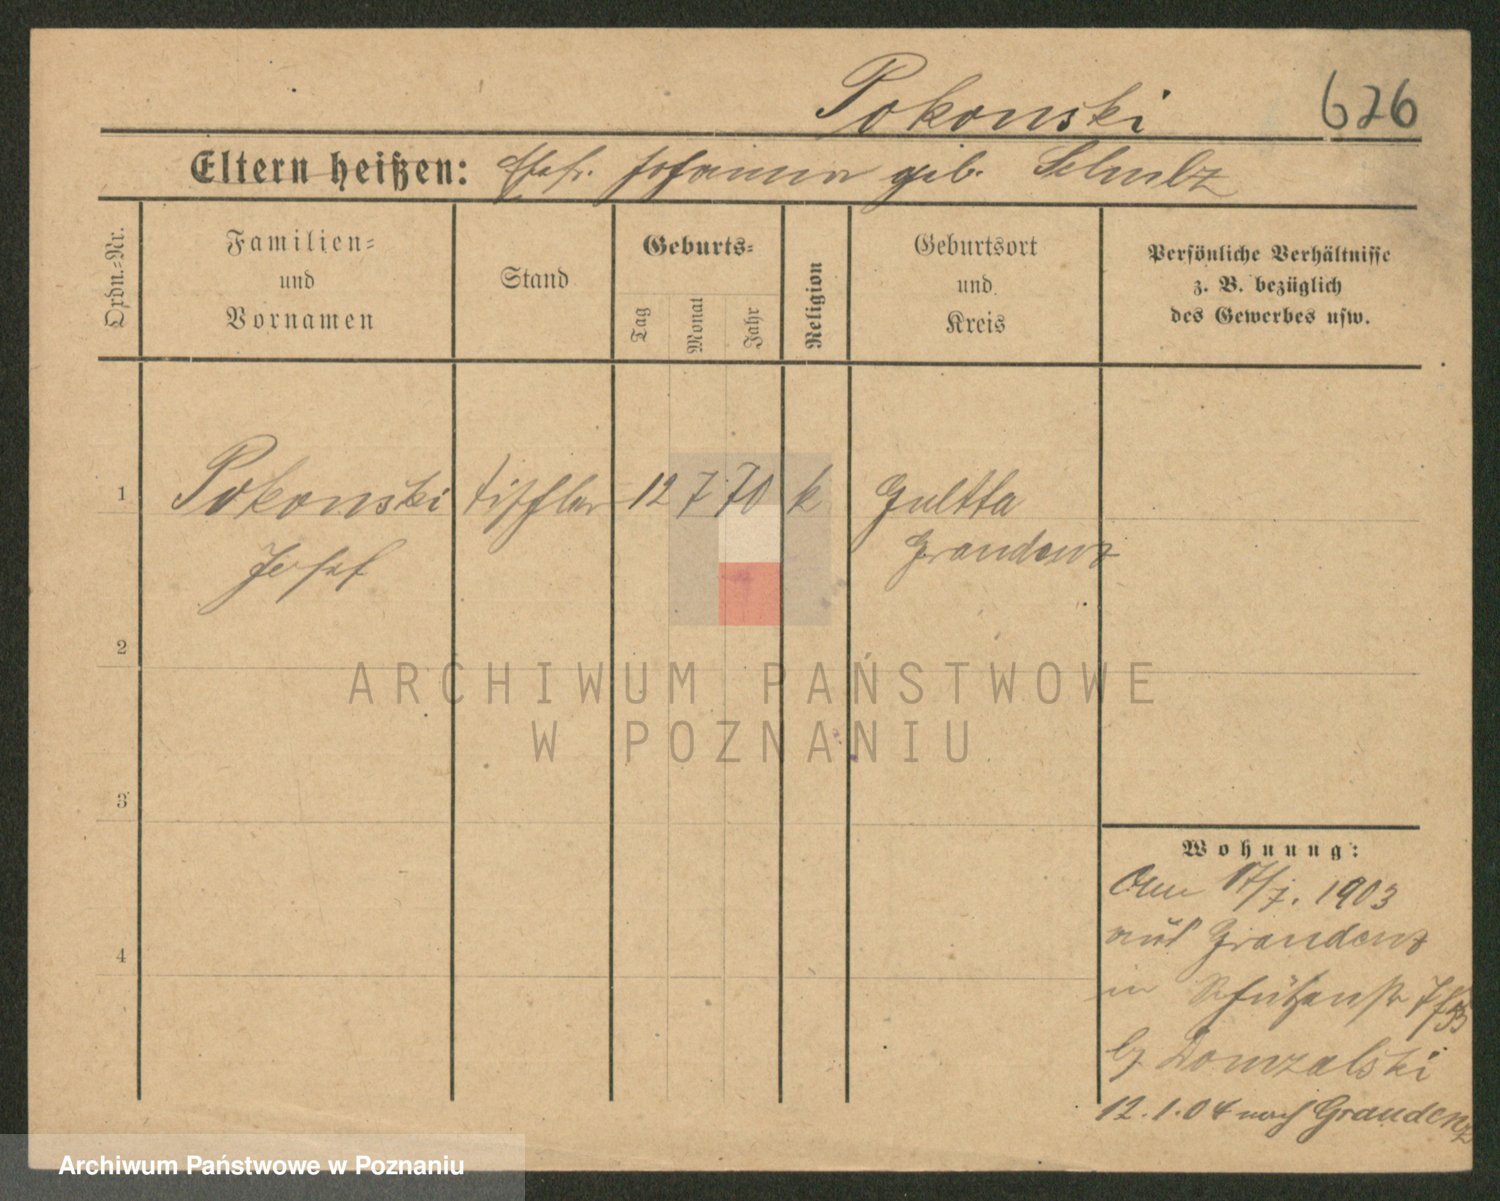 Pokonski 626
Eltern heißen: Ehefr. Johanna geb. Schulz
Ordn.-Nr.
Familien-
und
Vornamen
Stand
Geburts-
Tag
Monat
Jahr
Religion
Geburtsort
und
Kreis
Persönliche Verhältnisse
z. B. bezüglich
des Gewerbes usw.
1 Pokonski Tischler 12 7 70 k Gultta
Josef Graudenz
2
3
4
Wohnung:
Am 17/7. 1903
aus Graudenz
in Schützenstr
b/ Domzalski
12.1.04 nach Graudenz
ARCHIWUM PAŃSTWOWE
W POZNANIU
Archiwum Państwowe w Poznaniu